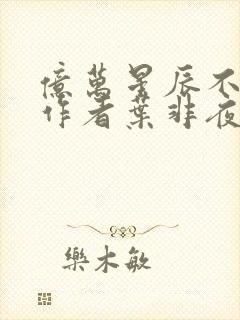 億萬星辰不
作者葉非夜
樂木敏